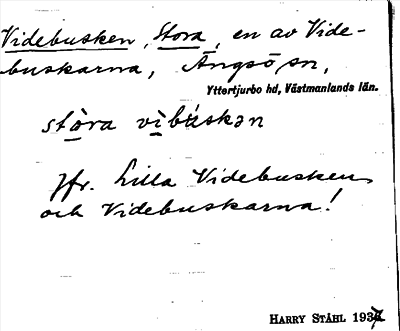 Videbusken, Stora, en av Vide-
buskarna, Ängsö sn,
Yttertjurbo hd, Västmanlands län.
stòra vìbúskən
Jfr. Lilla Videbusken
och Videbuskarna!
HARRY STÅHL 1937